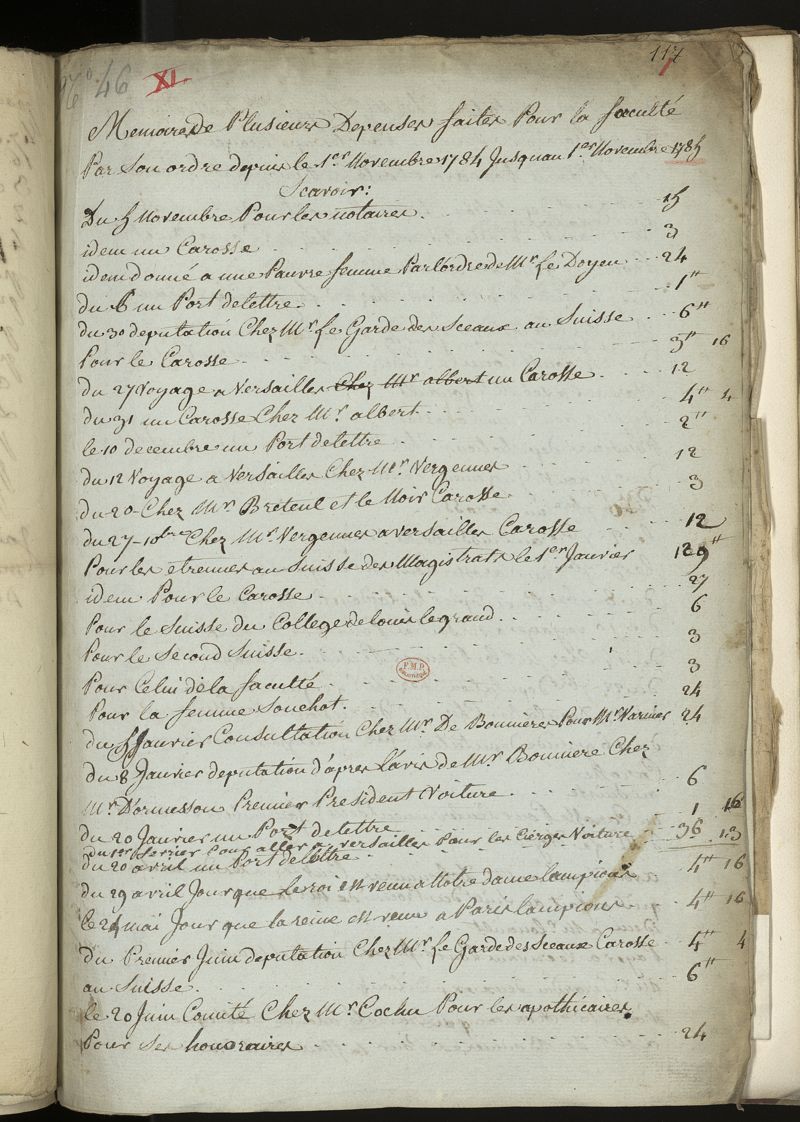 No 46 XI. 117
Memoire de Plusieurs Depenses faites Pour la faculté
Par Son ordre depuis le 1er Novembre 1784 Jusquau 1er Novembre 1785
Scavoir:
Du 5 Novembre Pour les notaires. 15
idem un Carosse 3
idem donné a une Pauvre femme Par l'ordre de Mr Le Doyen 24
du 6 un Port de lettre. 1"
du 30 deputation Chez Mr Le Garde des Sceaux au Suisse 6"
Pour le Carosse 3" 16
du 27 Voyage a Versailles Chez Mr albert un Carosse. 12
du 31 un Carosse Chez Mr albert 4" 4
le 10 decembre un Port de lettre 2"
du 12 Voyage a Versailles Chez Mr Vergennes 12
du 20 Chez Mr Breteul et le Noir Carosse 3
du 27 10bre Chez Mr Vergennes a versailles Carosse 12
Pour les etrennes au Suisse des Magistrats le 1er Janvier 129"
idem Pour le Carosse 27
Pour le Suisse du College de louis legrand 6
Pour le Second Suisse. 3
Pour Celui de la faculté 3
Pour la femme Souchot. 24
du 5 Janvier Consultation Chez Mr De Bonnieres Pour Mr Varnier 24
du 8 Janvier deputation d'apres L'avis de Mr Bonniere Chez
Mr D'ormesson Premier President Voiture 6
du 20 Janvier un Port de lettre 1 16
du 1er fevrier Pour aller a versailles Pour les Cierges Voiture 36 13
du 20 avril un Port de lettre
du 29 avril Jour que Le roi est venu a Notre dame lampions 4" 16
le 24 mai Jour que la reine est venu a Paris lampions 4" 16
du Premier Juin deputation Chez Mr Le Garde des Sceaux Carosse 4" 4
au Suisse. 6"
le 20 Juin Comité Chez Mr Cochu Pour les apothicaires
Pour Ses honoraires 24
F.M.P.
BIBLIOTHEQUE